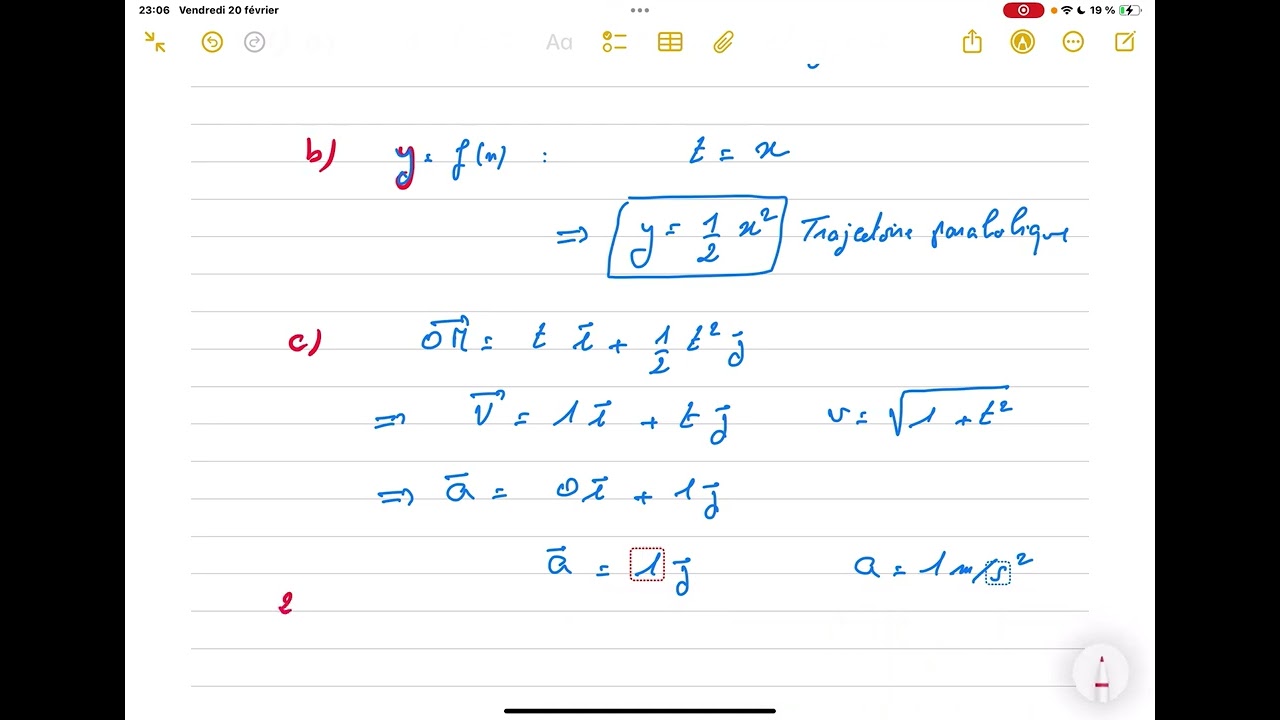 23:06 Vendredi 20 février
19 %
Aa
b) y = f(x) : t = x
⇒ y = 1/2 x² Trajectoire parabolique
c) \overrightarrow{OM} = t \vec{i} + 1/2 t² \vec{j}
⇒ \vec{V} = 1 \vec{i} + t \vec{j} v = √(1 + t²)
⇒ \vec{a} = 0 \vec{i} + 1 \vec{j}
\vec{a} = 1 \vec{j} a = 1 m/s²
2